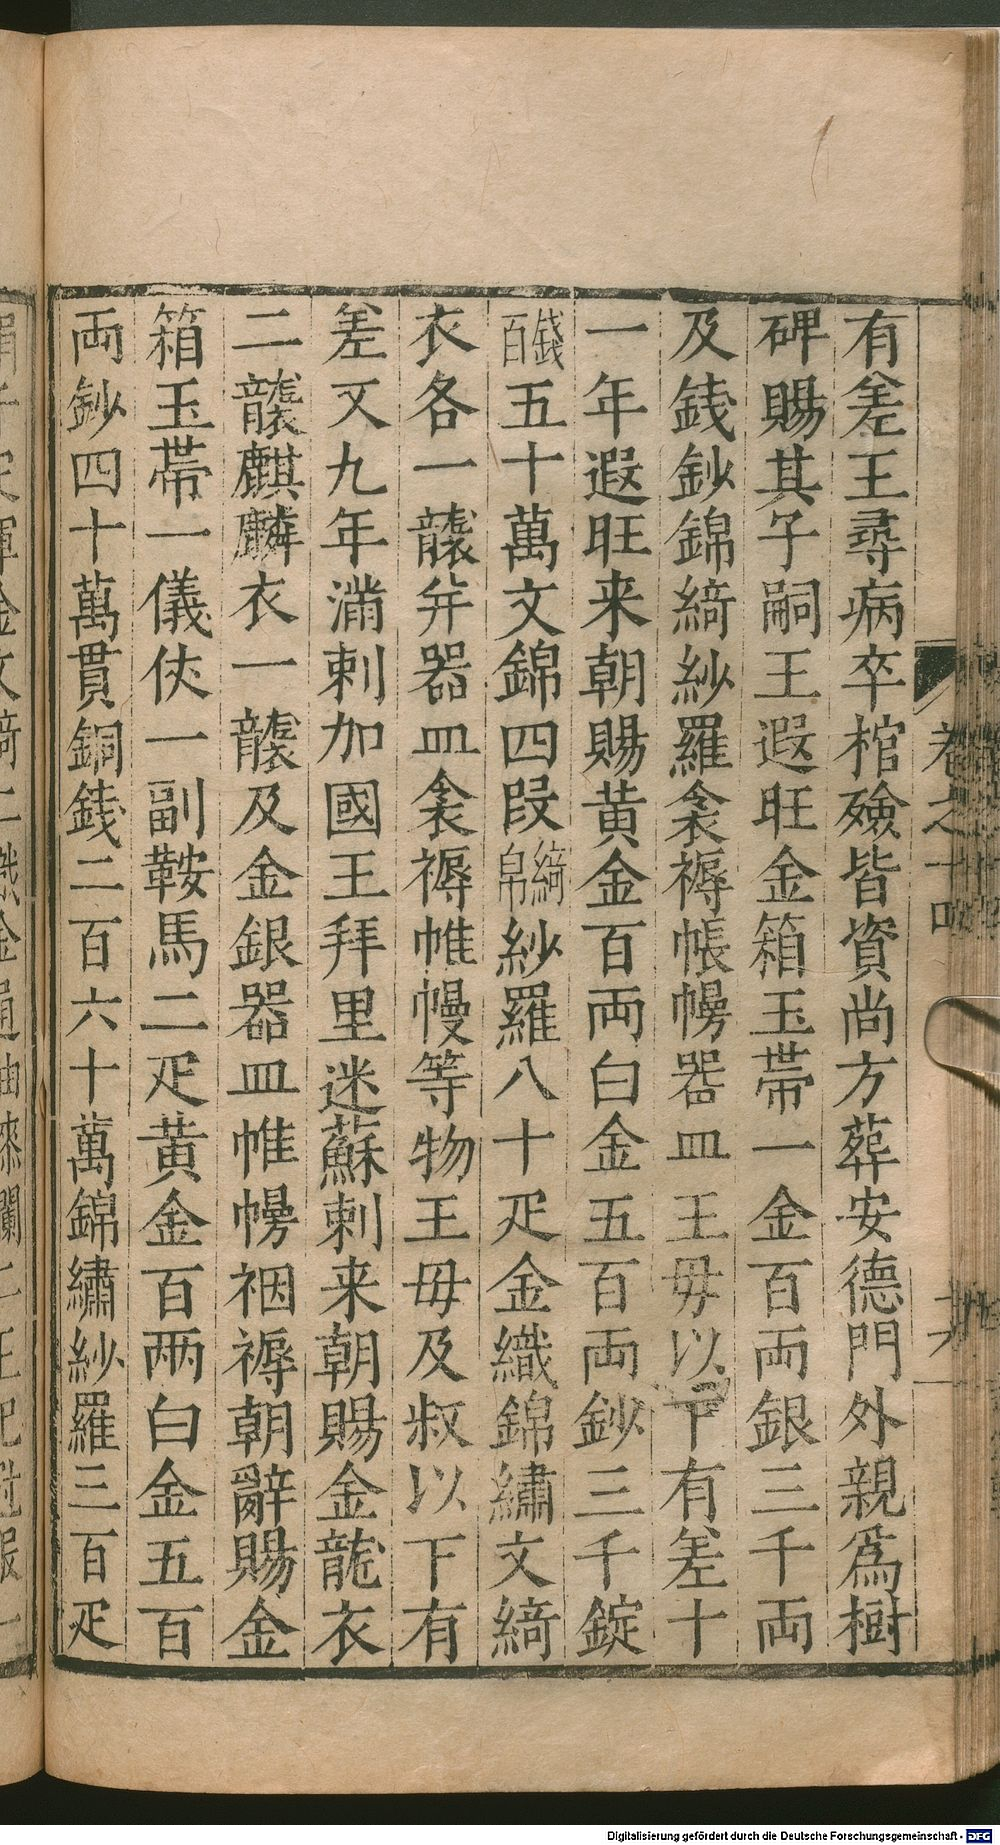 有差王尋病卒棺殮皆資尚方葬安德門外親爲樹
碑賜其子嗣王遐旺金箱玉帶一金百両銀三千両
及錢鈔錦綺紗羅衾褥帳幔器皿王母以下有差十
一年遐旺来朝賜黄金百両白金五百両鈔三千錠
錢百五十萬文錦四段綺帛紗羅八十疋金織錦繡文綺
衣各一襲并器皿衾褥帷幔等物王母及叔以下有
差又九年滿剌加國王拜里迷蘇剌来朝賜金龍衣
二襲麒麟衣一襲及金銀器皿帷幔裀褥朝辭賜金
箱玉帶一儀仗一副鞍馬二疋黄金百兩白金五百
両鈔四十萬貫銅錢二百六十萬錦繡紗羅三百疋
卷之十四
Digitalisierung gefördert durch die Deutsche Forschungsgemeinschaft - DFG